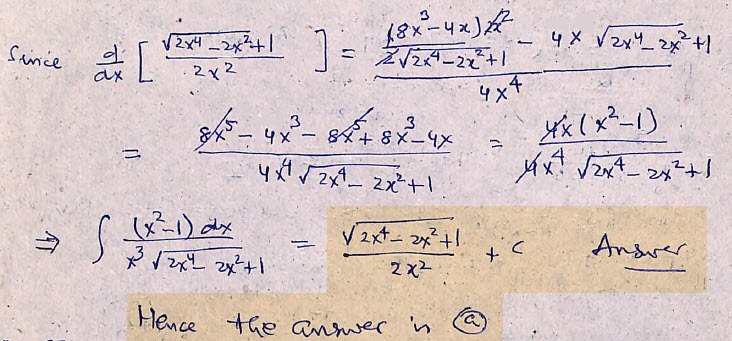 Since d/dx [ √(2x⁴ – 2x² + 1) / 2x² ] = ( (8x³ – 4x) 2x² / 2√(2x⁴ – 2x² + 1) – 4x √(2x⁴ – 2x² + 1) ) / 4x⁴
= ( 8x⁵ – 4x³ – 8x⁵ + 8x³ – 4x ) / ( 4x⁴ √(2x⁴ – 2x² + 1) ) = 4x (x² – 1) / ( 4x⁴ √(2x⁴ – 2x² + 1) )
⇒ ∫ (x² – 1) dx / ( x³ √(2x⁴ – 2x² + 1) ) = √(2x⁴ – 2x² + 1) / 2x² + c Answer
Hence the answer is ⓐ